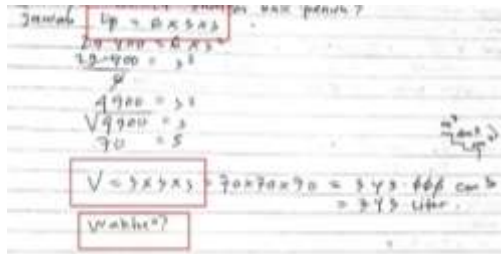 penuh?
Jawab Lp = 6 x s x s
29.400 = 6 x s²
29.400 = s²
6
4900 = s²
√4900 = s
70 = s
V = s x s x s = 70 x 70 x 70 = 343.000 cm³
= 343 liter.